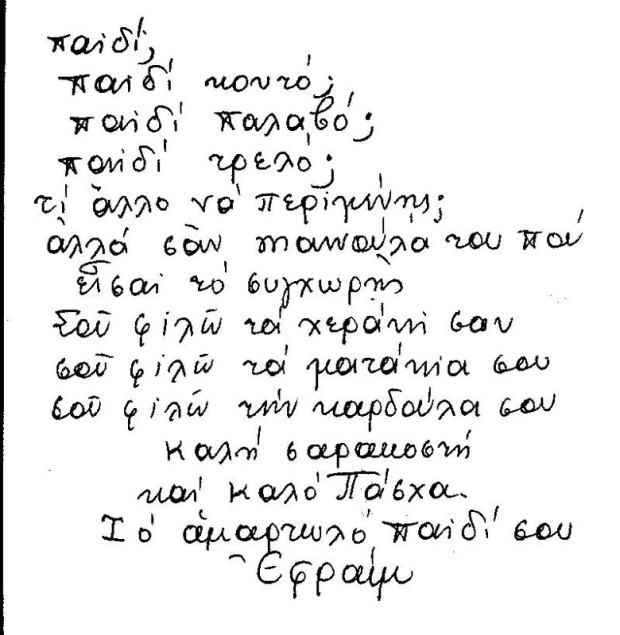 παιδί;
παιδί κουτό;
παιδί παλαβό;
παιδί τρελό;
τί ἄλλο νά περιμένης;
ἀλλά σάν μανούλα του πού
εἶσαι τό συγχωρῆς
Σοῦ φιλῶ τά χεράκι σου
σοῦ φιλῶ τά ματάκια σου
σοῦ φιλῶ τήν καρδούλα σου
καλή σαρακοστή
καί καλό Πάσχα.
τό ἁμαρτωλό παιδί σου
Ἐφραίμ